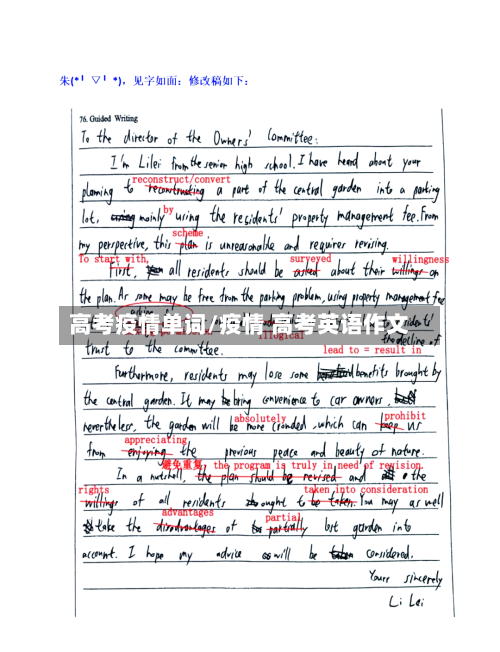 朱(*╹▽╹*)，见字如面：修改稿如下：
76. Guided Writing
To the director of the Owners' Committee:
I'm Lilei from the senior high school. I have heard about your
reconstruct/convert
planning to reconstructing a part of the central garden into a parking
by
lot, mainly using the residents' property management fee. From
scheme
my perspective, this plan is unreasonable and requires revising.
To start with, surveyed willingness
First, all residents should be asked about their willings on
the plan. As some may be free from the parking problem, using property management fee
高考疫情单词/疫情 高考英语作文
illogical
the decline of
trust to the committee.
lead to = result in
Furthermore, residents may lose some benefits brought by
the central garden. It may bring convenience to car owners,
absolutely prohibit
nevertheless, the garden will be more crowded, which can keep us
appreciating
from enjoying the previous peace and beauty of nature.
避免重复, the program is truly in need of revision
In a nutshell, the plan should be revised and the
rights taken into consideration
willings of all residents ought to be taken. You may as well
advantages partial
take the disadvantages of partially lost garden into
account. I hope my advice will be considered.
Yours sincerely
Li Lei